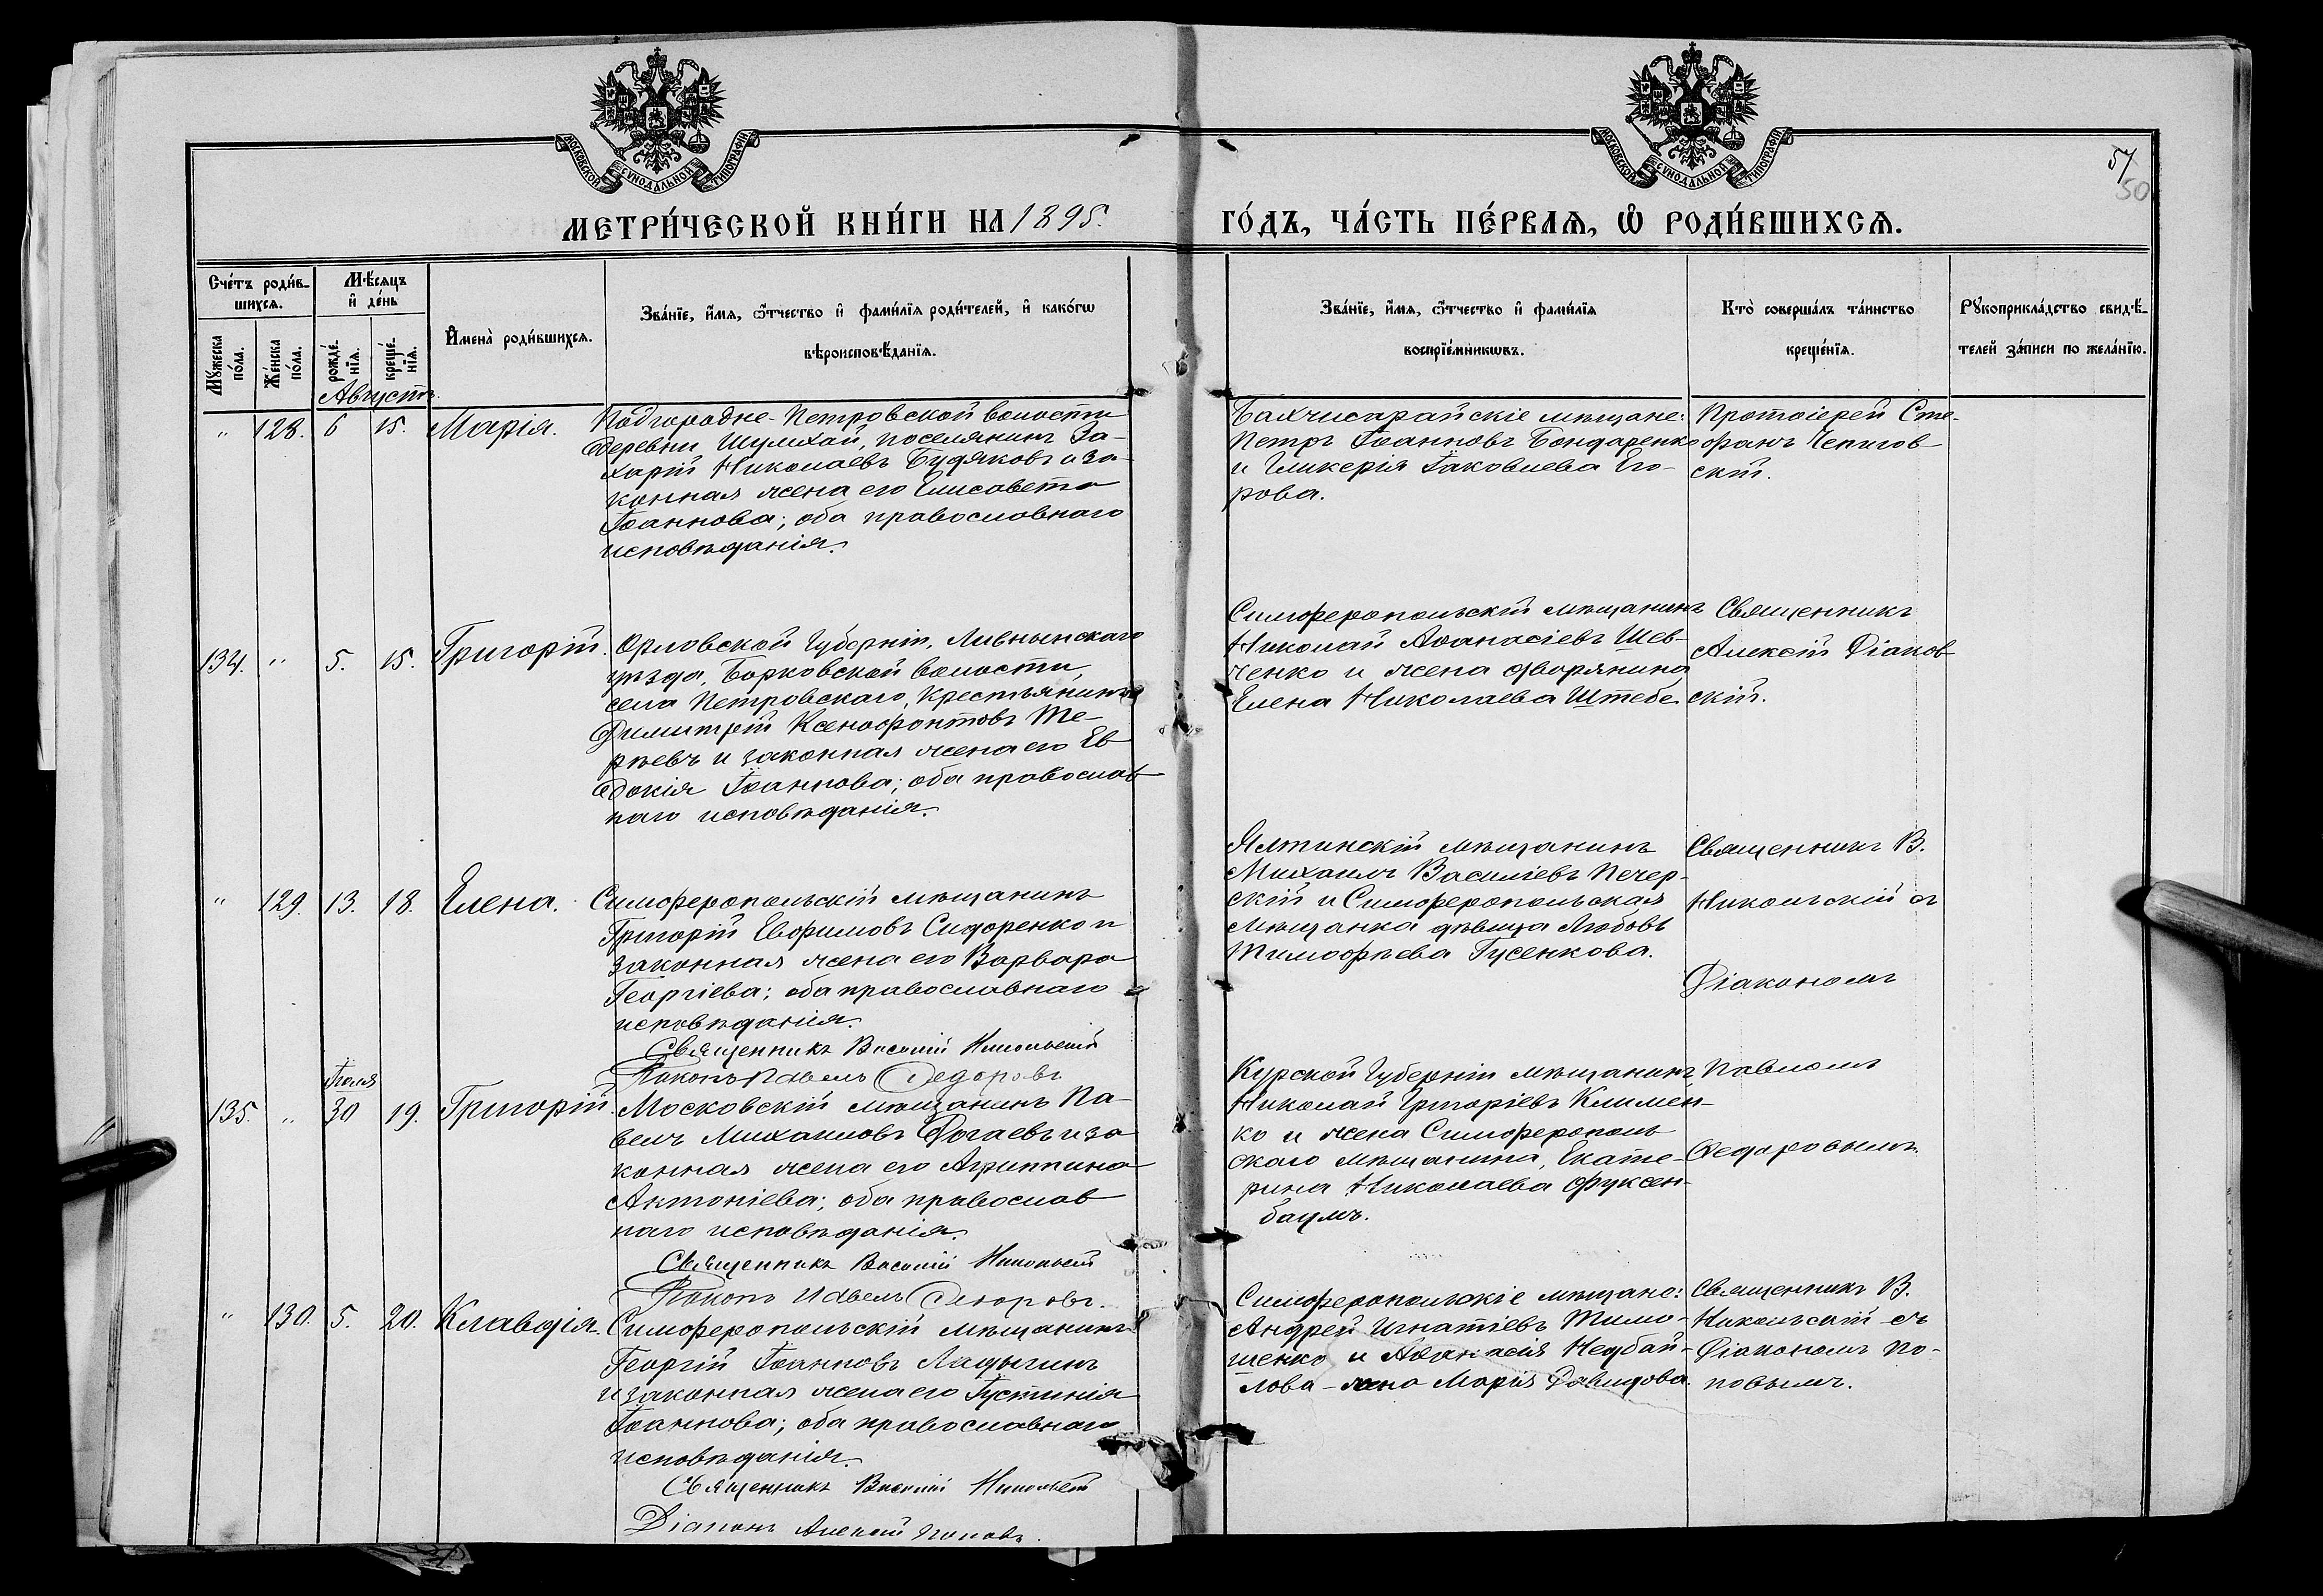 МОСКОВСКОЙ СУНОДАЛЬНОЙ ТИПОГРАФІИ
МОСКОВСКОЙ СУНОДАЛЬНОЙ ТИПОГРАФІИ
57
50
МЕТРИ́ЧЕСКОЙ КНИ́ГИ НА 1895.
ГО́ДЪ, ЧА́СТЬ ПЕ́РВАѦ, Ѡ҆ РОДИ́ВШИХСѦ.
Сче́тъ роди́в-
шихсѧ.
Мѣ́сѧцъ
и҆ де́нь
Мꙋ́жеска
по́ла.
Же́нска
по́ла.
рожде́-
нїѧ.
креще́-
нїѧ.
И҆мена̀ роди́вшихсѧ.
Зва́нїе, и҆́мѧ, ѻ҆́тчество и҆ фами́лїѧ роди́телей, и҆ како́гѡ
вѣроисповѣ́данїѧ.
Зва́нїе, и҆́мѧ, ѻ҆́тчество и҆ фами́лїѧ
воспрїе́мникѡвъ.
Кто̀ соверша́лъ та́инство
креще́нїѧ.
Рꙋкоприкла́дство свидѣ́-
телей за́писи по жела́нїю.
Августъ.
" 128. 6 15. Марія.
Подгородне-Петровской волости
деревни Шумхай, поселянинъ За-
харій Николаевъ Будяковъ и за-
конная жена его Елисавета
Іоаннова; оба православнаго
исповѣданія.
Бахчисарайскіе мѣщане:
Петръ Іоанновъ Бондаренко
и Гликерія Іаковлева Его-
рова.
Протоіерей Сте-
фанъ Чепигов
скій.
134. " 5. 15. Григорій.
Орловской Губерніи, Ливнынскаго
уѣзда, Борковской волости,
села Петровскаго, Крестьянинъ
Димитрій Ксенофонтовъ Те-
ряевъ и законная жена его Ев
докія Іоаннова; оба православ
наго исповѣданія.
Симферопольскій мѣщанинъ
Николай Аѳанасіевъ Шев-
ченко и жена дворянина
Елена Николаева Штебе.
Священникъ
Алексій Діанов
скій.
" 129. 13. 18. Елена.
Симферопольскій мѣщанинъ
Григорій Евфимовъ Сидоренко и
законная жена его Варвара
Георгіева; оба православнаго
исповѣданія.
Священникъ Василій Никольскій
Діаконъ Павелъ Федоровъ
Ялтинскій мѣщанинъ
Михаилъ Василіевъ Печер-
скій и Симферопольская
мѣщанка дѣвица Любовь
Тимофѣева Гусенкова.
Священникъ В.
Никольскій съ
Діакономъ
Павломъ
Федоровымъ.
Іюля
135. " 30 19. Григорій.
Московскій мѣщанинъ Па-
велъ Михаиловъ Догаевъ и за
конная жена его Агриппина
Антоніева; оба православ
наго исповѣданія.
Священникъ Василій Никольскій
Діаконъ Павелъ Федоровъ.
Курской Губерніи мѣщанинъ
Николай Григоріевъ Климен-
ко и жена Симферополь
скаго мѣщанина, Екате-
рина Николаева Фуксен-
баумъ.
" 130. 5. 20. Клавдія.
Симферопольскій мѣщанинъ
Георгій Іоанновъ Ладыгинъ
и законная жена его Іустинія
Іоаннова; оба православнаго
исповѣданія.
Священникъ Василій Никольскій
Діаконъ Алексій Поповъ.
Симферопольскіе мѣщане:
Андрей Игнатіевъ Тимо-
шенко и Аѳанасія Недбай-
лова - жена Марія Давидова.
Священникъ В.
Никольскій съ
Діакономъ По-
повымъ.